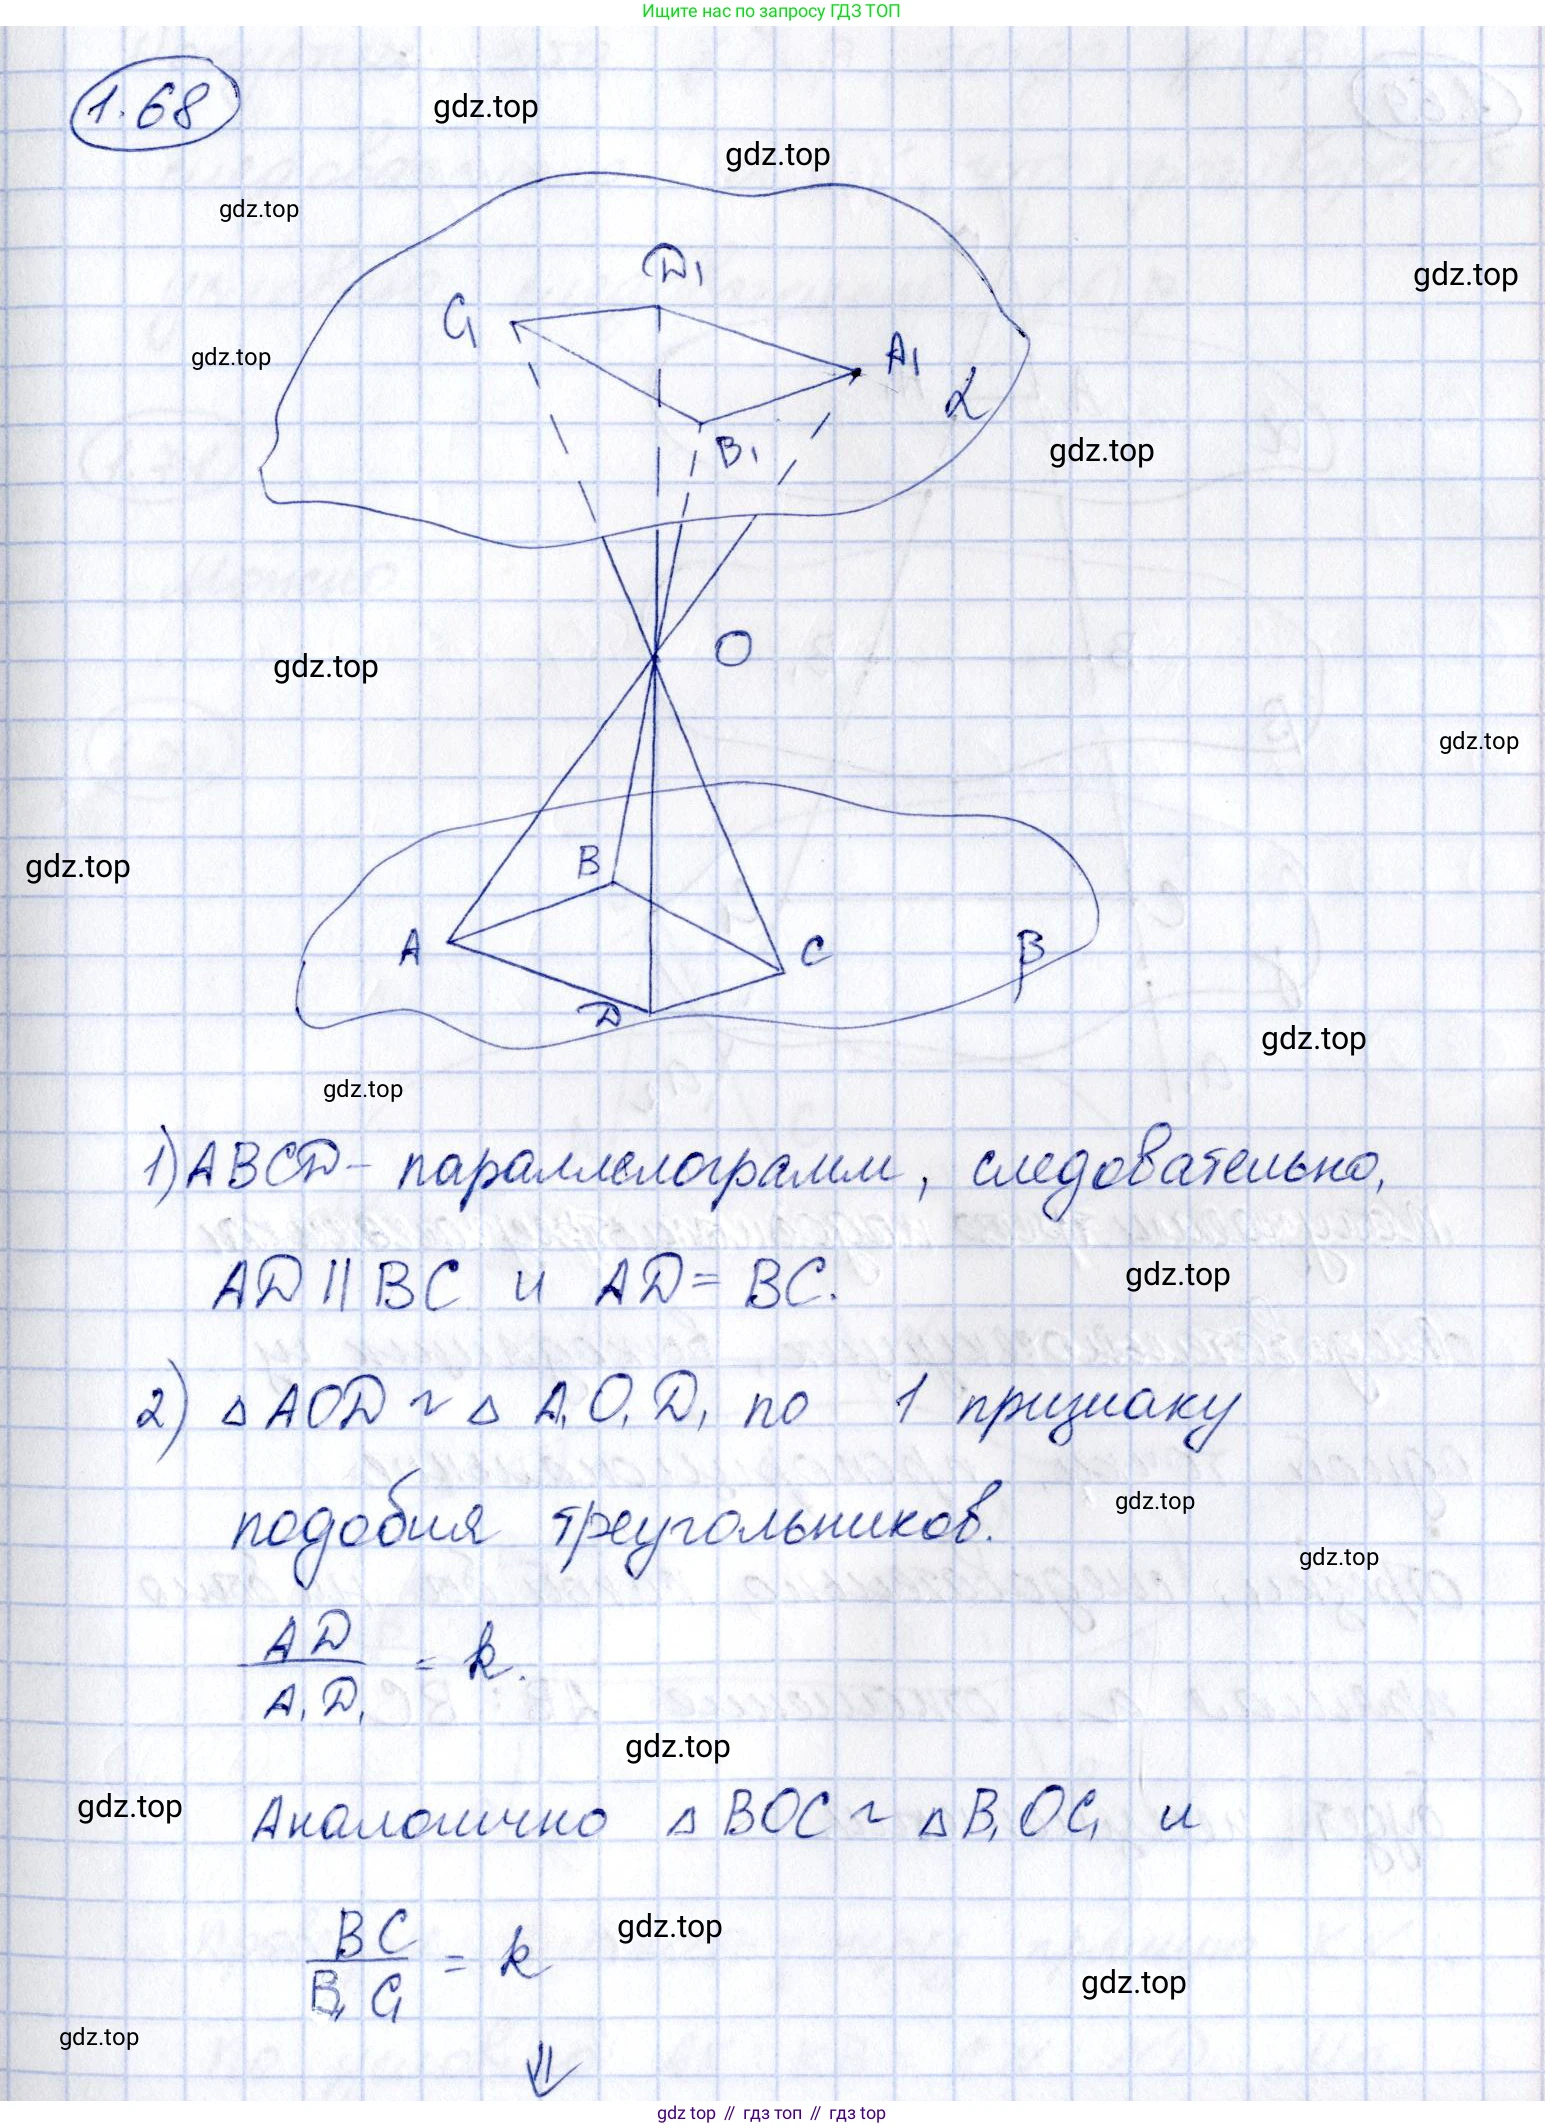 Ищите нас по запросу ГДЗ ТОП
1.68
gdz.top
gdz.top
gdz.top
D₁
gdz.top
C₁
gdz.top
A₁
α
B₁
gdz.top
O
gdz.top
gdz.top
B
gdz.top
A
C
β
D
gdz.top
gdz.top
1) ABCD - параллелограмм, следовательно,
AD || BC и AD = BC.
gdz.top
2) △ AOD ~ △ A₁O₁D₁ по 1 признаку
подобия треугольников.
gdz.top
gdz.top
AD
A₁D₁ = k.
gdz.top
gdz.top
Аналогично △ BOC ~ △ B₁OC₁ и
BC
B₁C₁ = k
gdz.top
gdz.top
gdz.top
⇓
gdz top // гдз топ // гдз top